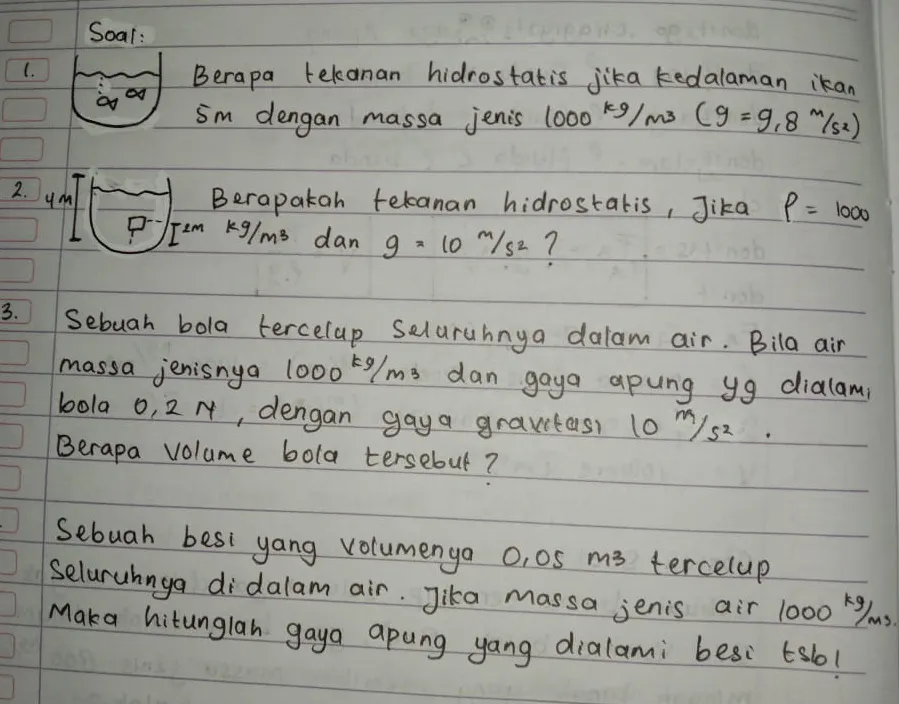 Soal:
1. Berapa tekanan hidrostatis jika kedalaman ikan
5m dengan massa jenis 1000 kg/m3 (g = 9,8 m/s2)
2. 4m Berapakah tekanan hidrostatis, Jika ρ = 1000
2m kg/m3 dan g = 10 m/s2 ?
3. Sebuah bola tercelup seluruhnya dalam air. Bila air
massa jenisnya 1000 kg/m3 dan gaya apung yg dialami
bola 0,2 N, dengan gaya gravitasi 10 m/s2 .
Berapa volume bola tersebut ?
Sebuah besi yang volumenya 0,05 m3 tercelup
Seluruhnya di dalam air. Jika massa jenis air 1000 kg/m3.
Maka hitunglah gaya apung yang dialami besi tsb!